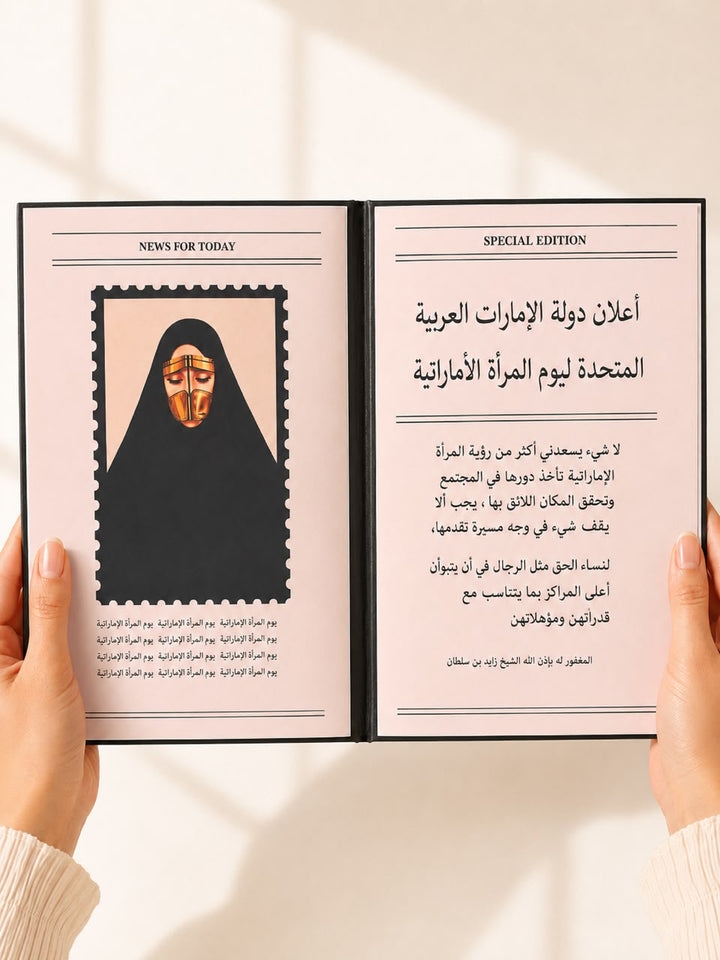 NEWS FOR TODAY
يوم المرأة الإماراتية يوم المرأة الإماراتية يوم المرأة الإماراتية
يوم المرأة الإماراتية يوم المرأة الإماراتية يوم المرأة الإماراتية
يوم المرأة الإماراتية يوم المرأة الإماراتية يوم المرأة الإماراتية
يوم المرأة الإماراتية يوم المرأة الإماراتية يوم المرأة الإماراتية
SPECIAL EDITION
أعلان دولة الإمارات العربية
المتحدة ليوم المرأة الأماراتية
لا شيء يسعدني أكثر من رؤية المرأة
الإماراتية تأخذ دورها في المجتمع
وتحقق المكان اللائق بها ، يجب ألا
يقف شيء في وجه مسيرة تقدمها،
لنساء الحق مثل الرجال في أن يتبوأن
أعلى المراكز بما يتناسب مع
قدراتهن ومؤهلاتهن
المغفور له بإذن الله الشيخ زايد بن سلطان